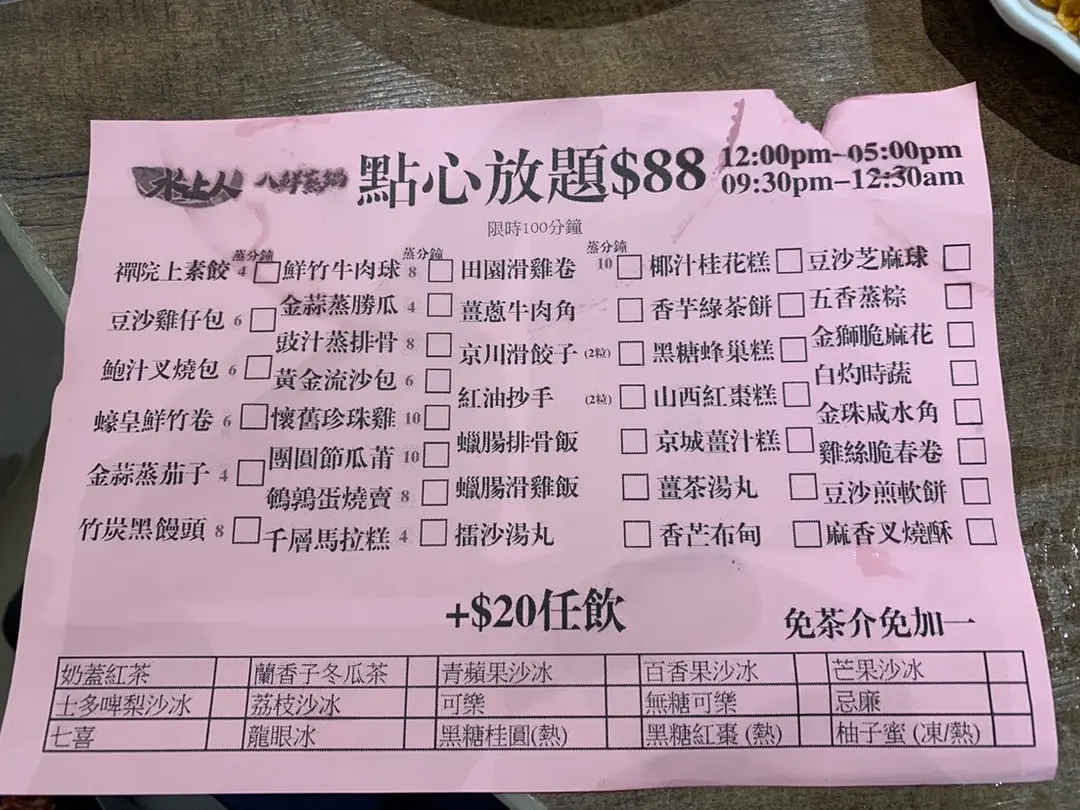 水上人 八鮮蒸鍋 點心放題$88 12:00pm-05:00pm
09:30pm-12:30am
限時100分鐘
蒸分鐘 蒸分鐘 蒸分鐘
禪院上素餃 4
豆沙雞仔包 6
鮑汁叉燒包 6
蠔皇鮮竹卷 6
金蒜蒸茄子 4
竹炭黑饅頭 8
鮮竹牛肉球 8
金蒜蒸勝瓜 4
豉汁蒸排骨 8
黃金流沙包 6
懷舊珍珠雞 10
團圓節瓜莆 10
鵪鶉蛋燒賣 8
千層馬拉糕 4
田園滑雞卷 10
薑蔥牛肉角
京川滑餃子 (2粒)
紅油抄手 (2粒)
蠟腸排骨飯
蠟腸滑雞飯
擂沙湯丸
椰汁桂花糕
香芋綠茶餅
黑糖蜂巢糕
山西紅棗糕
京城薑汁糕
薑茶湯丸
香芒布甸
豆沙芝麻球
五香蒸粽
金獅脆麻花
白灼時蔬
金珠咸水角
雞絲脆春卷
豆沙煎軟餅
麻香叉燒酥
+$20任飲 免茶介免加一
奶蓋紅茶 蘭香子冬瓜茶 青蘋果沙冰 百香果沙冰 芒果沙冰
士多啤梨沙冰 荔枝沙冰 可樂 無糖可樂 忌廉
七喜 龍眼冰 黑糖桂圓(熱) 黑糖紅棗 (熱) 柚子蜜 (凍/熱)